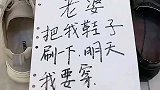 老婆
把我鞋子
刷下明天
我要穿